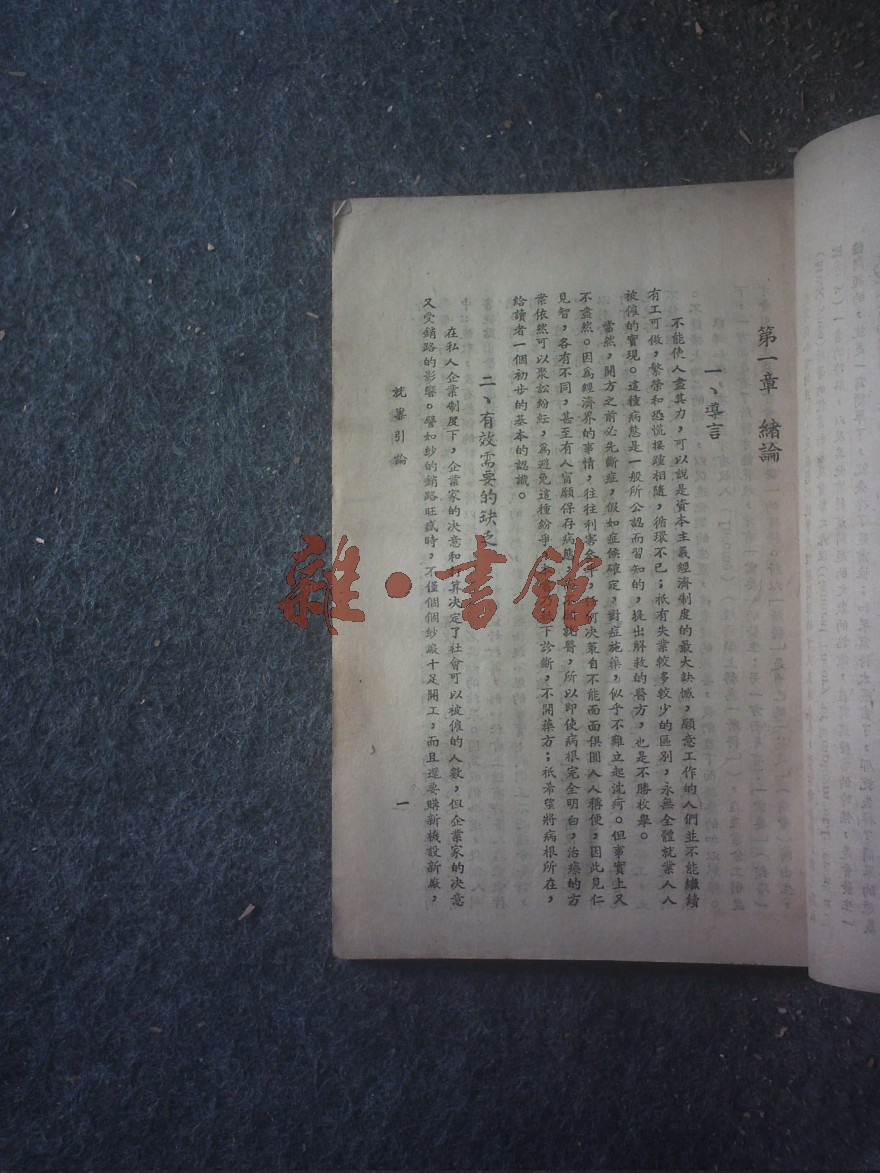 第一章　緒論
一、導言
不能使人盡其力，可以說是資本主義經濟制度的最大缺憾，願意工作的人們並不能繼續
有工可做，繁榮和恐慌接踵相隨，循環不已；祇有失業較多較少的區別，永無全體就業人人
被僱的實現。這種病態是一般所公認而習知的，提出解救的醫方，也是不勝枚舉。
當然，開方之前必先斷症，假如症候確定，對症施藥，似乎不難立起沈疴。但事實上又
不盡然。因爲經濟界的事情，往往利害 決策自不能面面俱圓人人稱便，因此見仁
見智，各有不同，甚至有人甯願保存病態 就醫，所以即使病根完全明白，治療的方
案依然可以聚訟紛紜，爲避免這種紛爭 下診斷，不開藥方；祇希望將病根所在，
給讀者一個初步的基本的認識。
二、有效需要的缺乏
在私人企業制度下，企業家的決意和 決定了社會可以被僱的人數，但企業家的決意
又受銷路的影響。譬如紗的銷路旺盛時，不僅個個紗廠十足開工，而且還要購新機設新廠，
就業引論
一
雜·書館